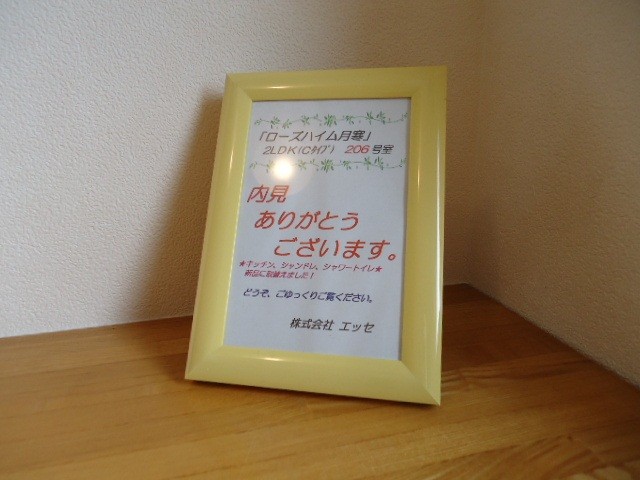 「ローズハイム月寒」
2LDK(Cﾀｲﾌﾟ) 206号室
内見
ありがとう
ございます。
★キッチン、シャンドレ、シャワートイレ★
新品に取替えました！
どうぞ、ごゆっくりご覧ください。
株式会社 エッセ